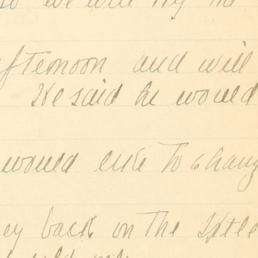 we will try the
afternoon and will
He said he would
would like to chang
ey back on the